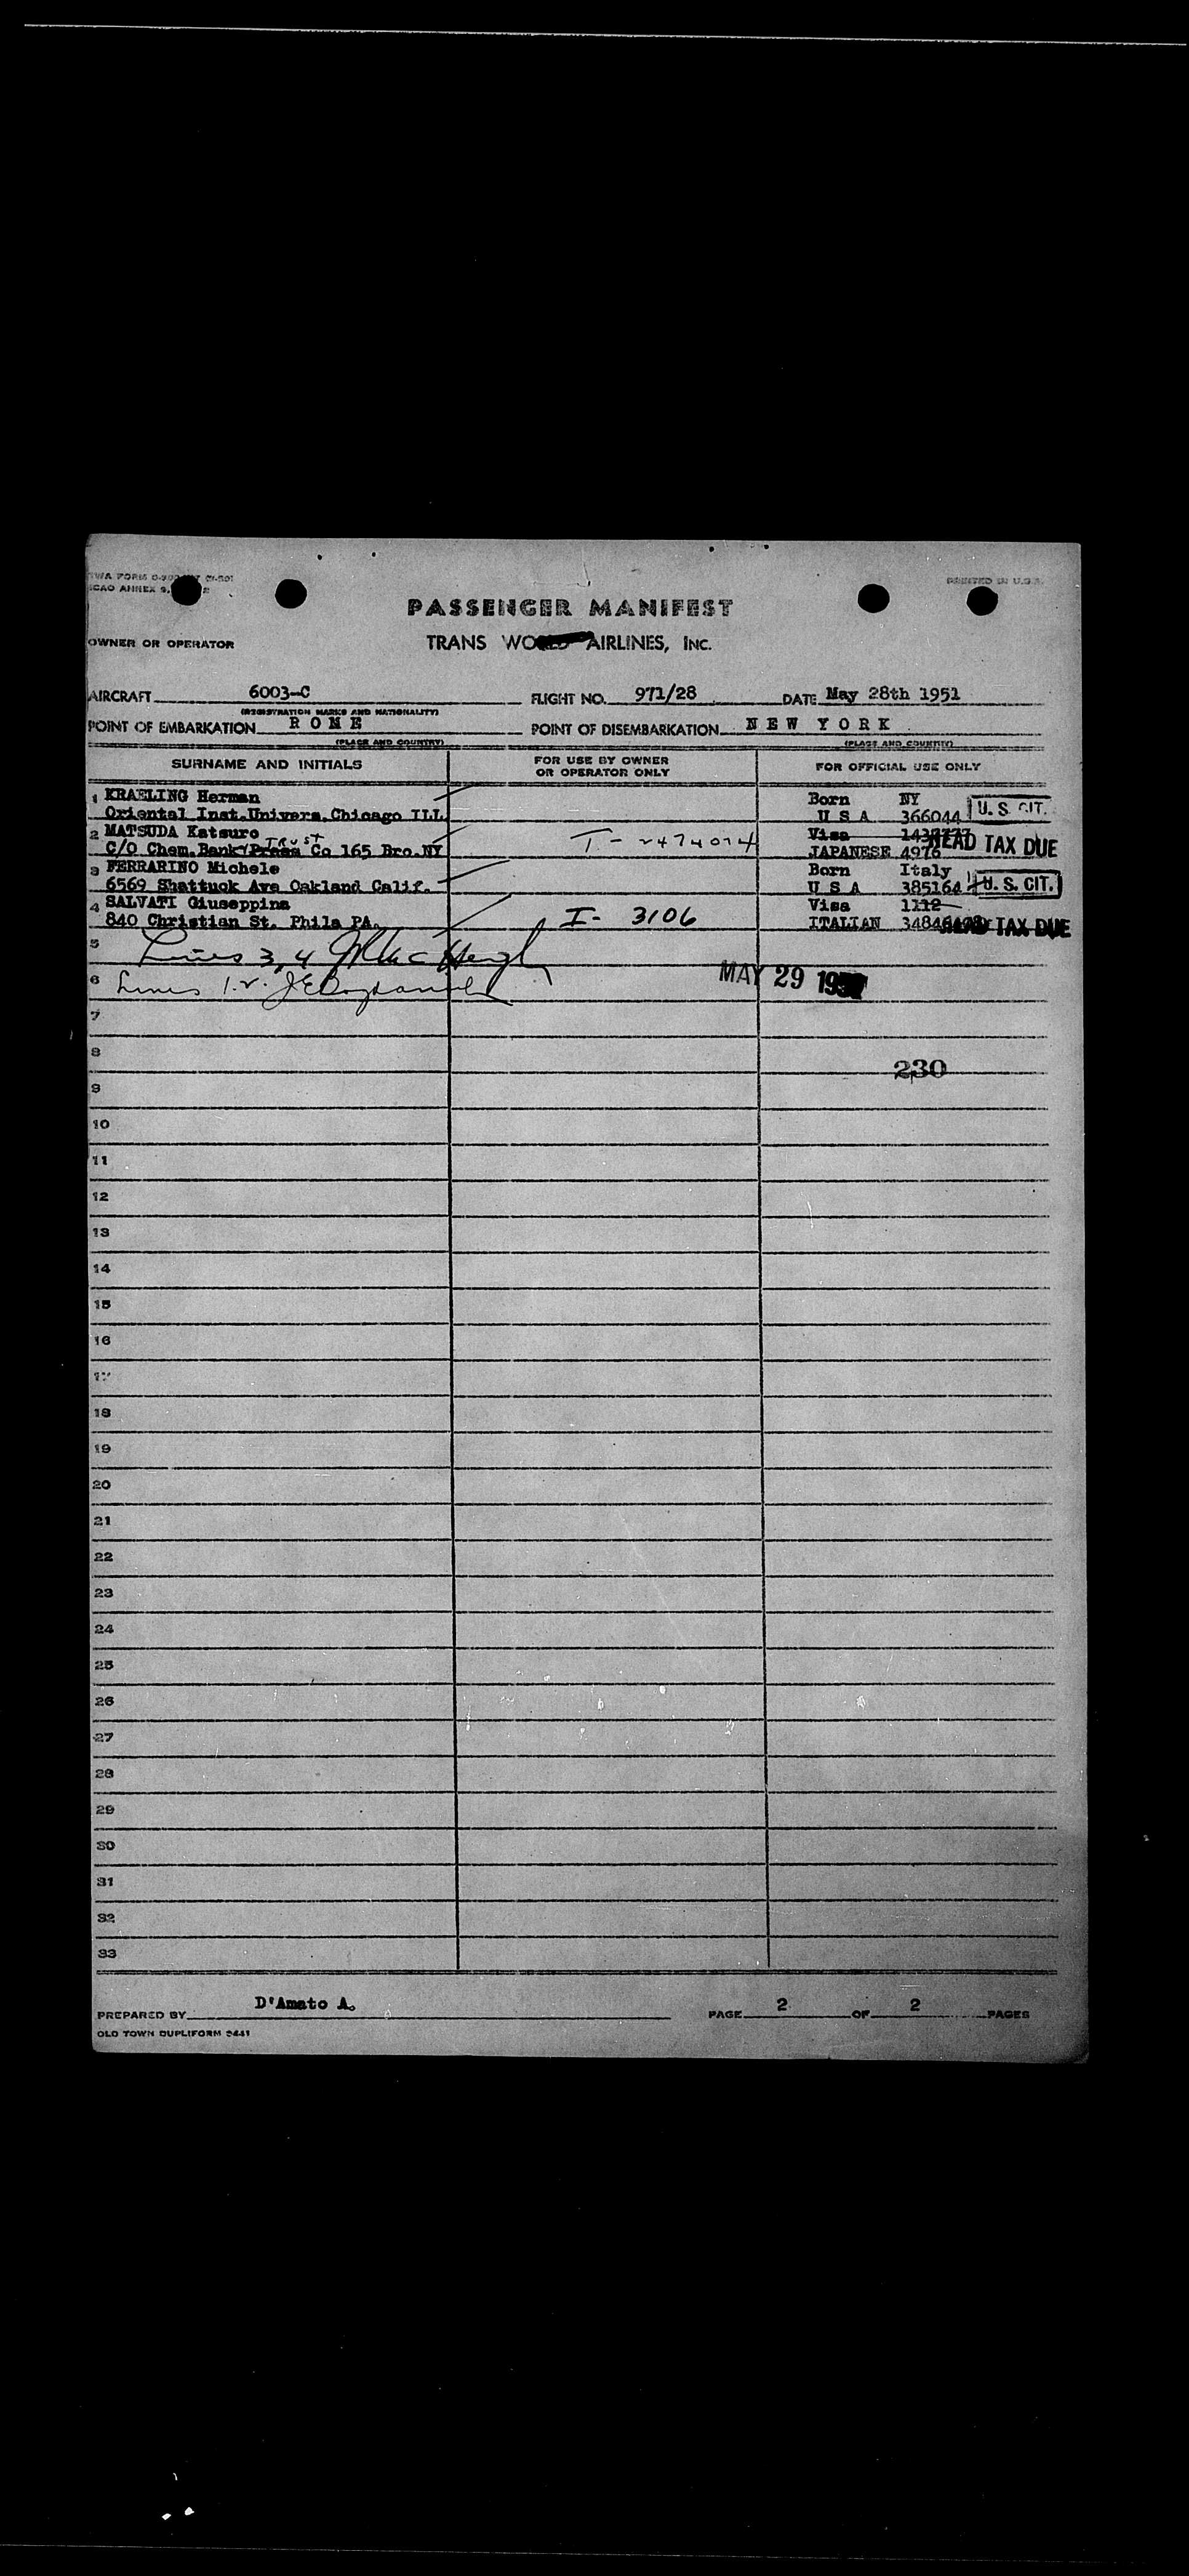 TWA FORM
ICAO ANNEX 9,
PRINTED IN U.S.A.
PASSENGER MANIFEST
OWNER OR OPERATOR TRANS WORLD AIRLINES, INC.
AIRCRAFT 6003-C FLIGHT NO. 971/28 DATE May 28th 1951
(REGISTRATION MARKS AND NATIONALITY)
POINT OF EMBARKATION R O M E POINT OF DISEMBARKATION N E W Y O R K
(PLACE AND COUNTRY) (PLACE AND COUNTRY)
SURNAME AND INITIALS FOR USE BY OWNER OR OPERATOR ONLY FOR OFFICIAL USE ONLY
1 KRAELING Herman Born NY
Oriental Inst.Univers.Chicago ILL U S A 366044 U. S. CIT.
2 MATSUDA Katsuro Trust T- 2474074 Visa HEAD TAX DUE
C/O Chem.Bank Co 165 Bro.NY JAPANESE 4976
3 FERRARINO Michele Born Italy
6569 Shattuck Ave Oakland Calif. U S A 385164 U. S. CIT.
4 SALVATI Giuseppina Visa 1112
840 Christian St. Phila PA. I- 3106 ITALIAN HEAD TAX DUE
5 Lines 3,4
6 Lines 1.2. MAY 29
7
8 230
9
10
11
12
13
14
15
16
17
18
19
20
21
22
23
24
25
26
27
28
29
30
31
32
33
PREPARED BY D'Amato A. PAGE 2 OF 2 PAGES
OLD TOWN DUPLIFORM 9441